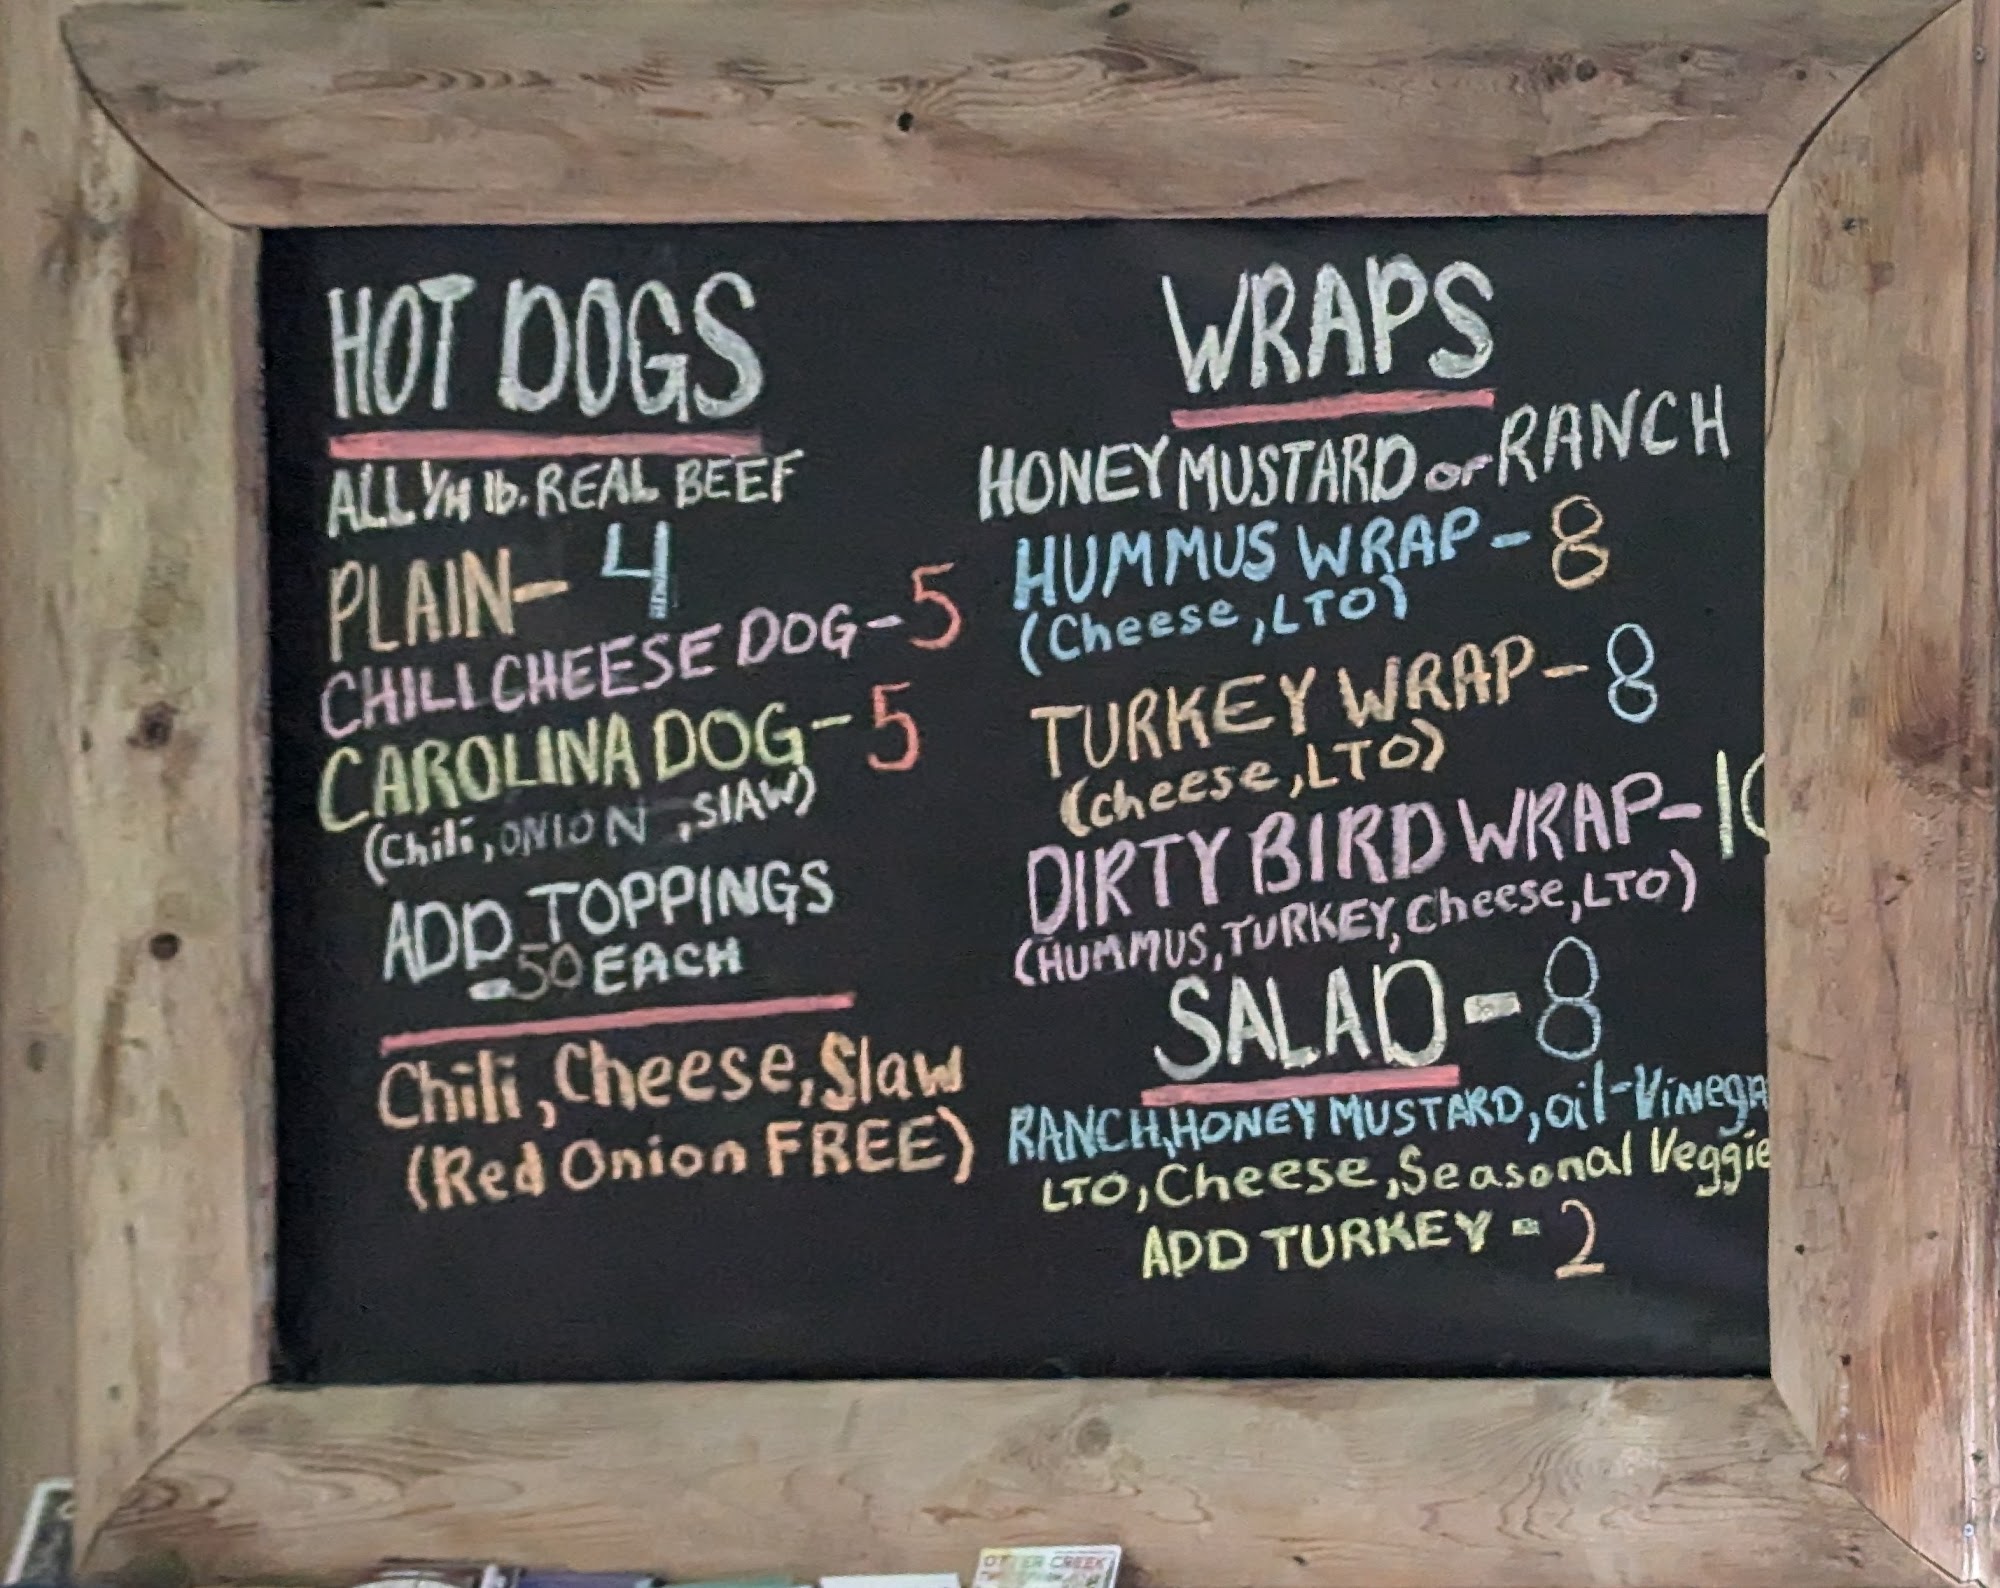 HOT DOGS
ALL 1/4 lb. REAL BEEF
PLAIN- 4
CHILI CHEESE DOG-5
CAROLINA DOG-5
(Chili, ONION, SLAW)
ADD TOPPINGS
.50 EACH
Chili, Cheese, Slaw
(Red Onion FREE)
WRAPS
HONEY MUSTARD or RANCH
HUMMUS WRAP-8
(Cheese, LTO)
TURKEY WRAP-8
(cheese, LTO)
DIRTY BIRD WRAP-10
(HUMMUS, TURKEY, Cheese, LTO)
SALAD-8
RANCH, HONEY MUSTARD, oil-Vinega
LTO, Cheese, Seasonal Veggie
ADD TURKEY - 2
OTTER CREEK